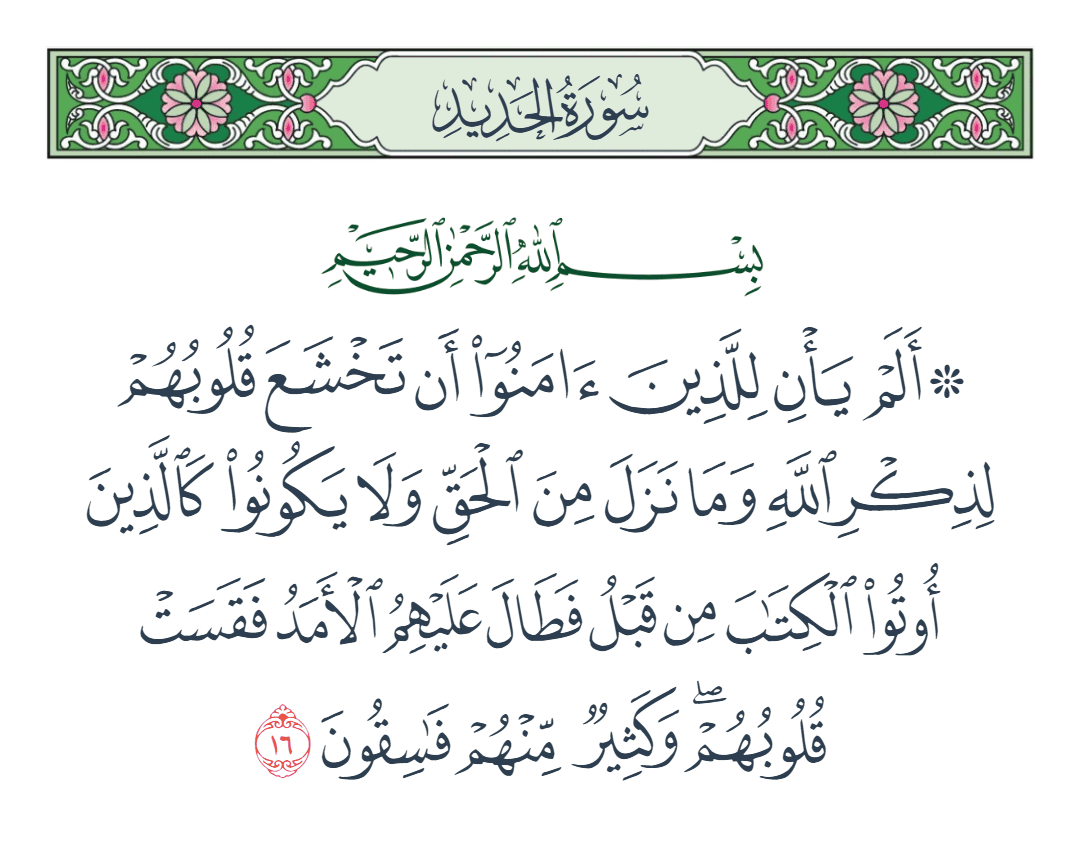 سُورَةُ الحَدِيدِ
بِسْمِ ٱللَّهِ ٱلرَّحْمَٰنِ ٱلرَّحِيمِ
۞ أَلَمْ يَأْنِ لِلَّذِينَ ءَامَنُوٓا۟ أَن تَخْشَعَ قُلُوبُهُمْ
لِذِكْرِ ٱللَّهِ وَمَا نَزَلَ مِنَ ٱلْحَقِّ وَلَا يَكُونُوا۟ كَٱلَّذِينَ
أُوتُوا۟ ٱلْكِتَـٰبَ مِن قَبْلُ فَطَالَ عَلَيْهِمُ ٱلْأَمَدُ فَقَسَتْ
قُلُوبُهُمْ ۖ وَكَثِيرٌ مِّنْهُمْ فَـٰسِقُونَ ١٦